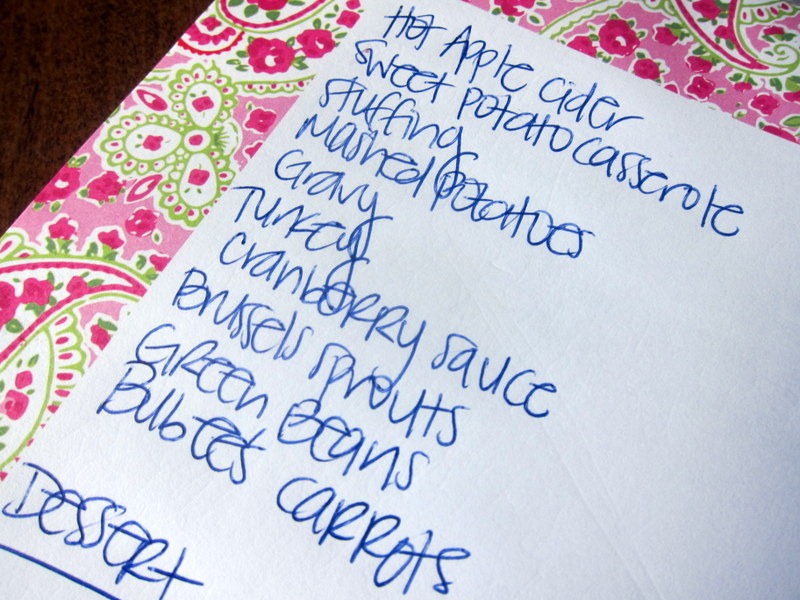 Hot Apple Cider
Sweet potato casserole
Stuffing
Mashed potatoes
Gravy
Turkey
Cranberry sauce
Brussels sprouts
Green Beans
Bubbes carrots
Dessert